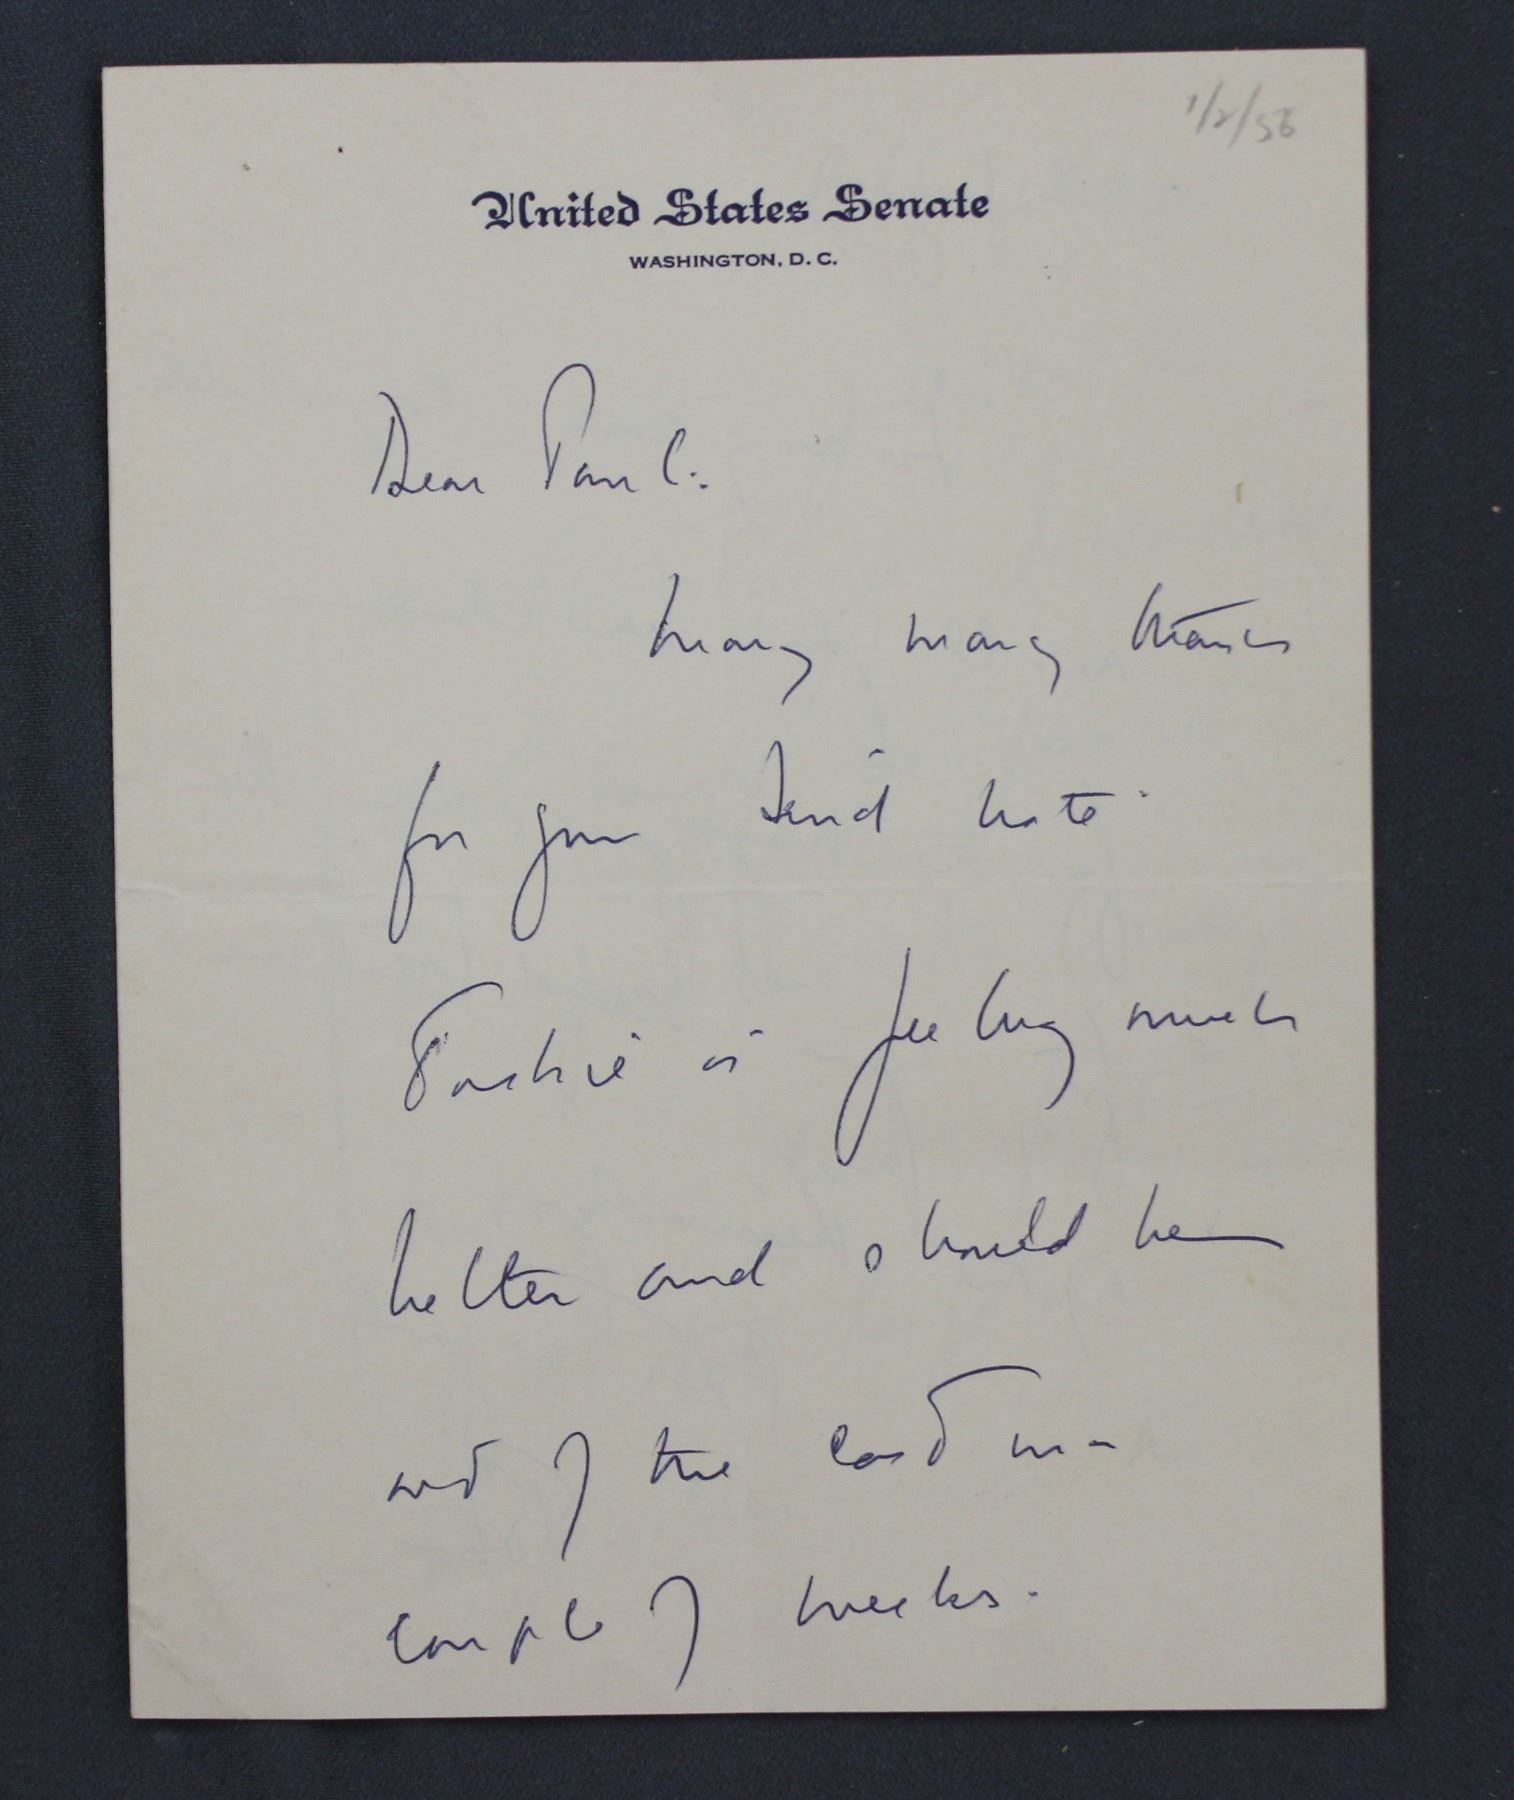 1/2/56
United States Senate
WASHINGTON, D. C.
Dear Paul:
Many many thanks
for your kind note.
Jackie is feeling much
better and should be
out of the cast in a
couple of weeks.